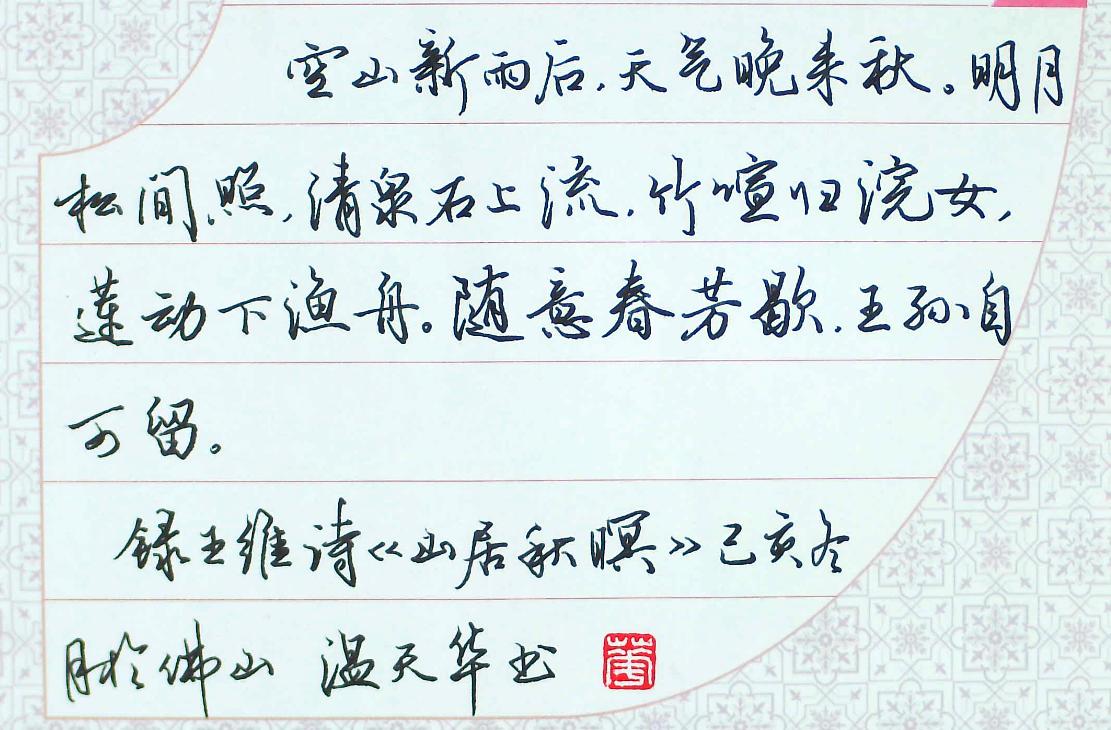 空山新雨后,天气晚来秋。明月
松间照,清泉石上流,竹喧归浣女,
莲动下渔舟。随意春芳歇,王孙自
可留。
録王维诗《山居秋暝》己亥冬
月於佛山 温天华书
華